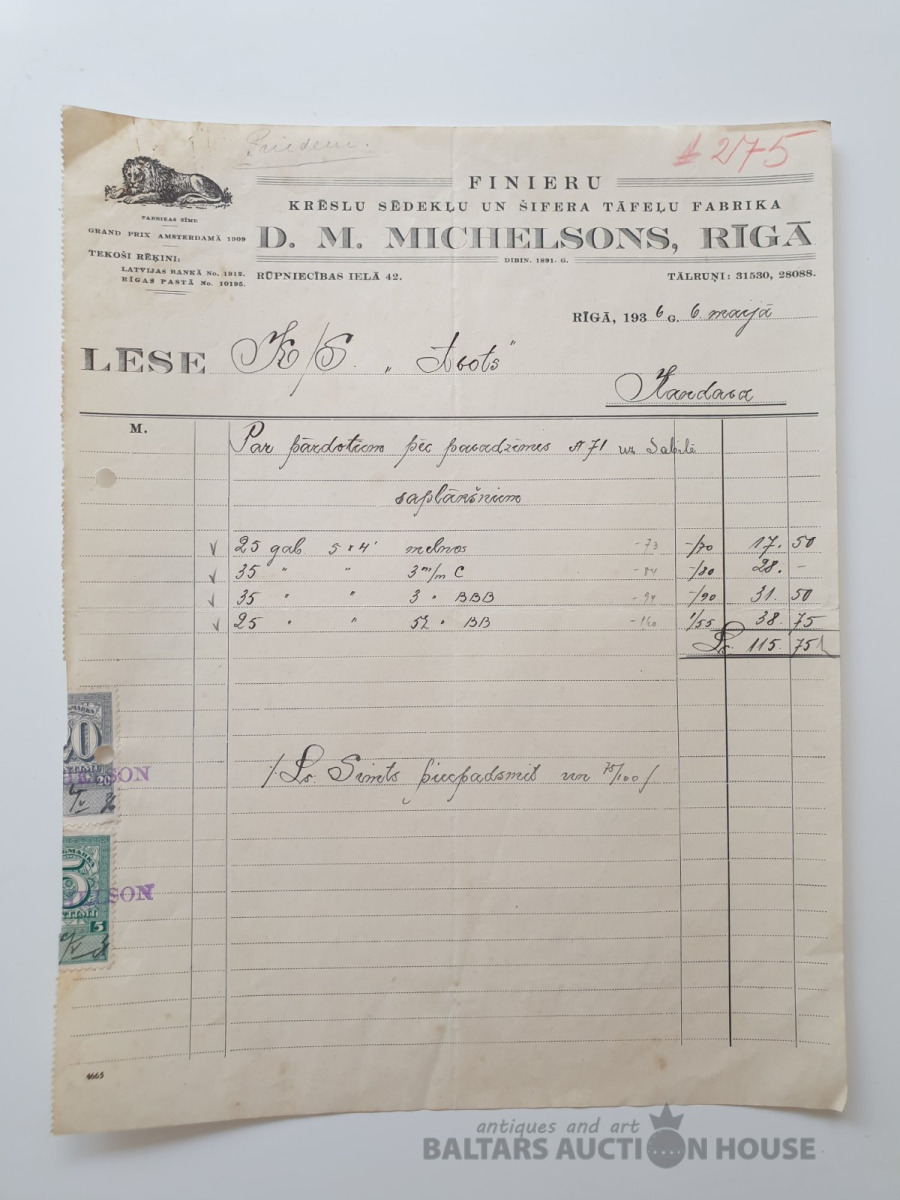 Priedem.
№ 2175
FINIERU
KRĒSLU SĒDEKĻU UN ŠIFERA TĀFEĻU FABRIKA
D. M. MICHELSONS, RĪGĀ
DIBIN. 1891. G.
FABRIKAS ZĪME
GRAND PRIX AMSTERDAMĀ 1909
TEKOŠI RĒĶINI:
LATVIJAS BANKĀ No. 1912.
RĪGAS PASTĀ No. 10195.
RŪPNIECĪBAS IELĀ 42.
TĀLRUŅI: 31530, 28088.
RĪGĀ, 1936 G. 6. maijā
LĒSE K/S. „Avots"
Kandavā
M.
Par pārdotiem pēc pavadzīmes № 71 uz Sabili
saplākšņiem
25 gab. 5 x 4' melnas -73 -/70 17. 50
35 " " 3 m/m C -84 -/80 28. -
35 " " 3 " BBB -94 -/90 31. 50
25 " " 5½ " BB -160 1/55 38. 75
Ls. 115. 75
/. Ls. Simts piecpadsmit un 75/100 /
20
20
SON
5
5
ELSON
4665
antiques and art
BALTARS AUCTION HOUSE